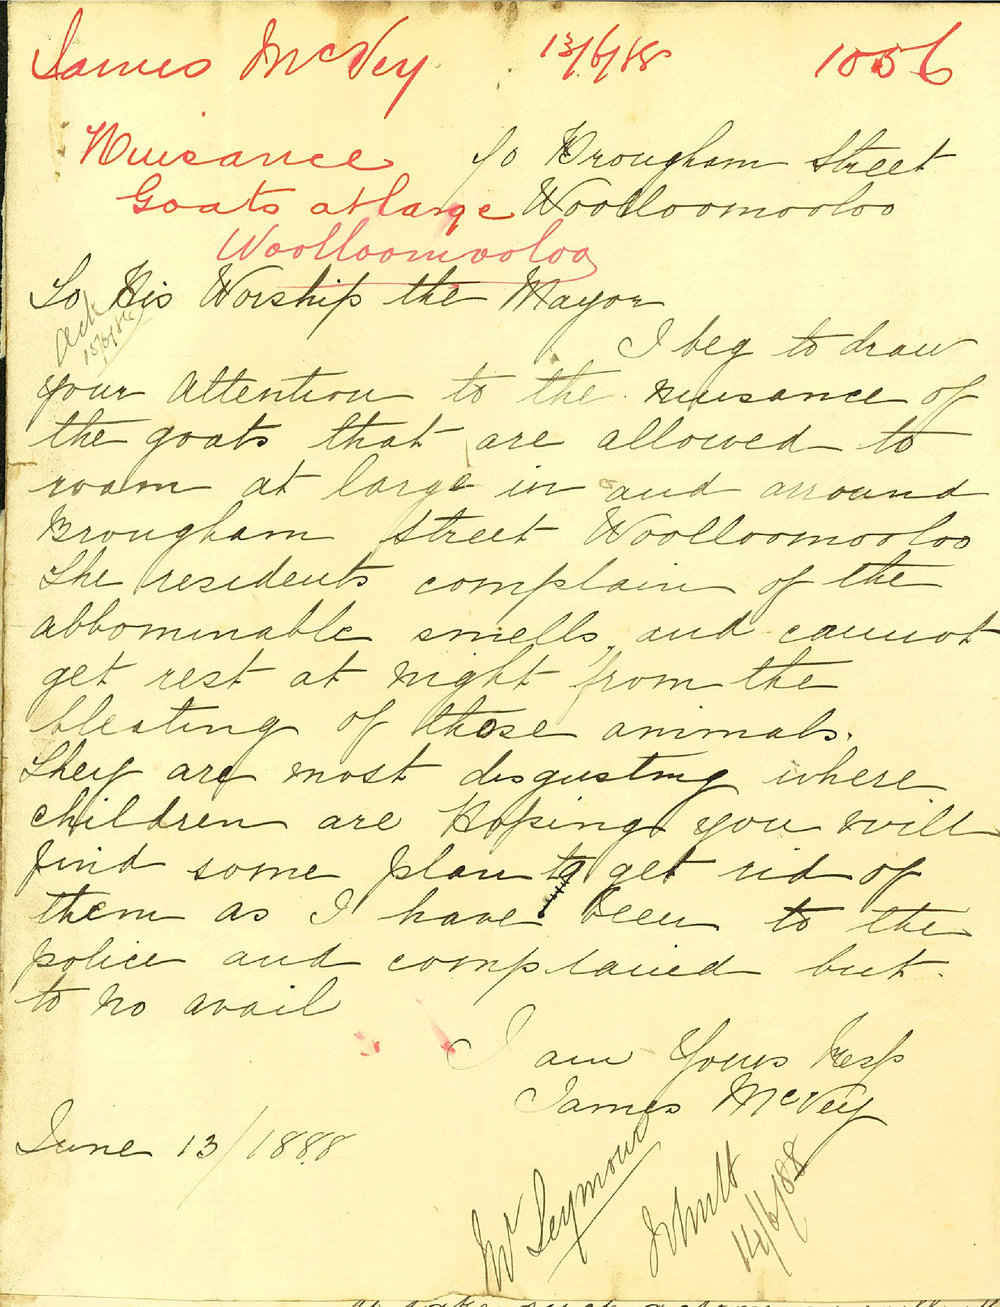 James McVey 13/6/88 1056
Nuisance
Goats at large
Woolloomooloo
70 Brougham Street
Woolloomooloo
To His Worship the Mayor
Ack
15/6/88
I beg to draw
your Attention to the nuisance of
the goats that are allowed to
roam at large in and arround
Brougham Street Woolloomooloo
The residents complain of the
abbominable smells, and cannot
get rest at night from the
bleating of those animals.
They are most disgusting where
children are Hoping you will
find some plan to get rid of
them as I have been to the
police and complained but
to no avail
I am Yours Resp
James McVey
June 13/1888
Mr Seymour
14/6/88
such